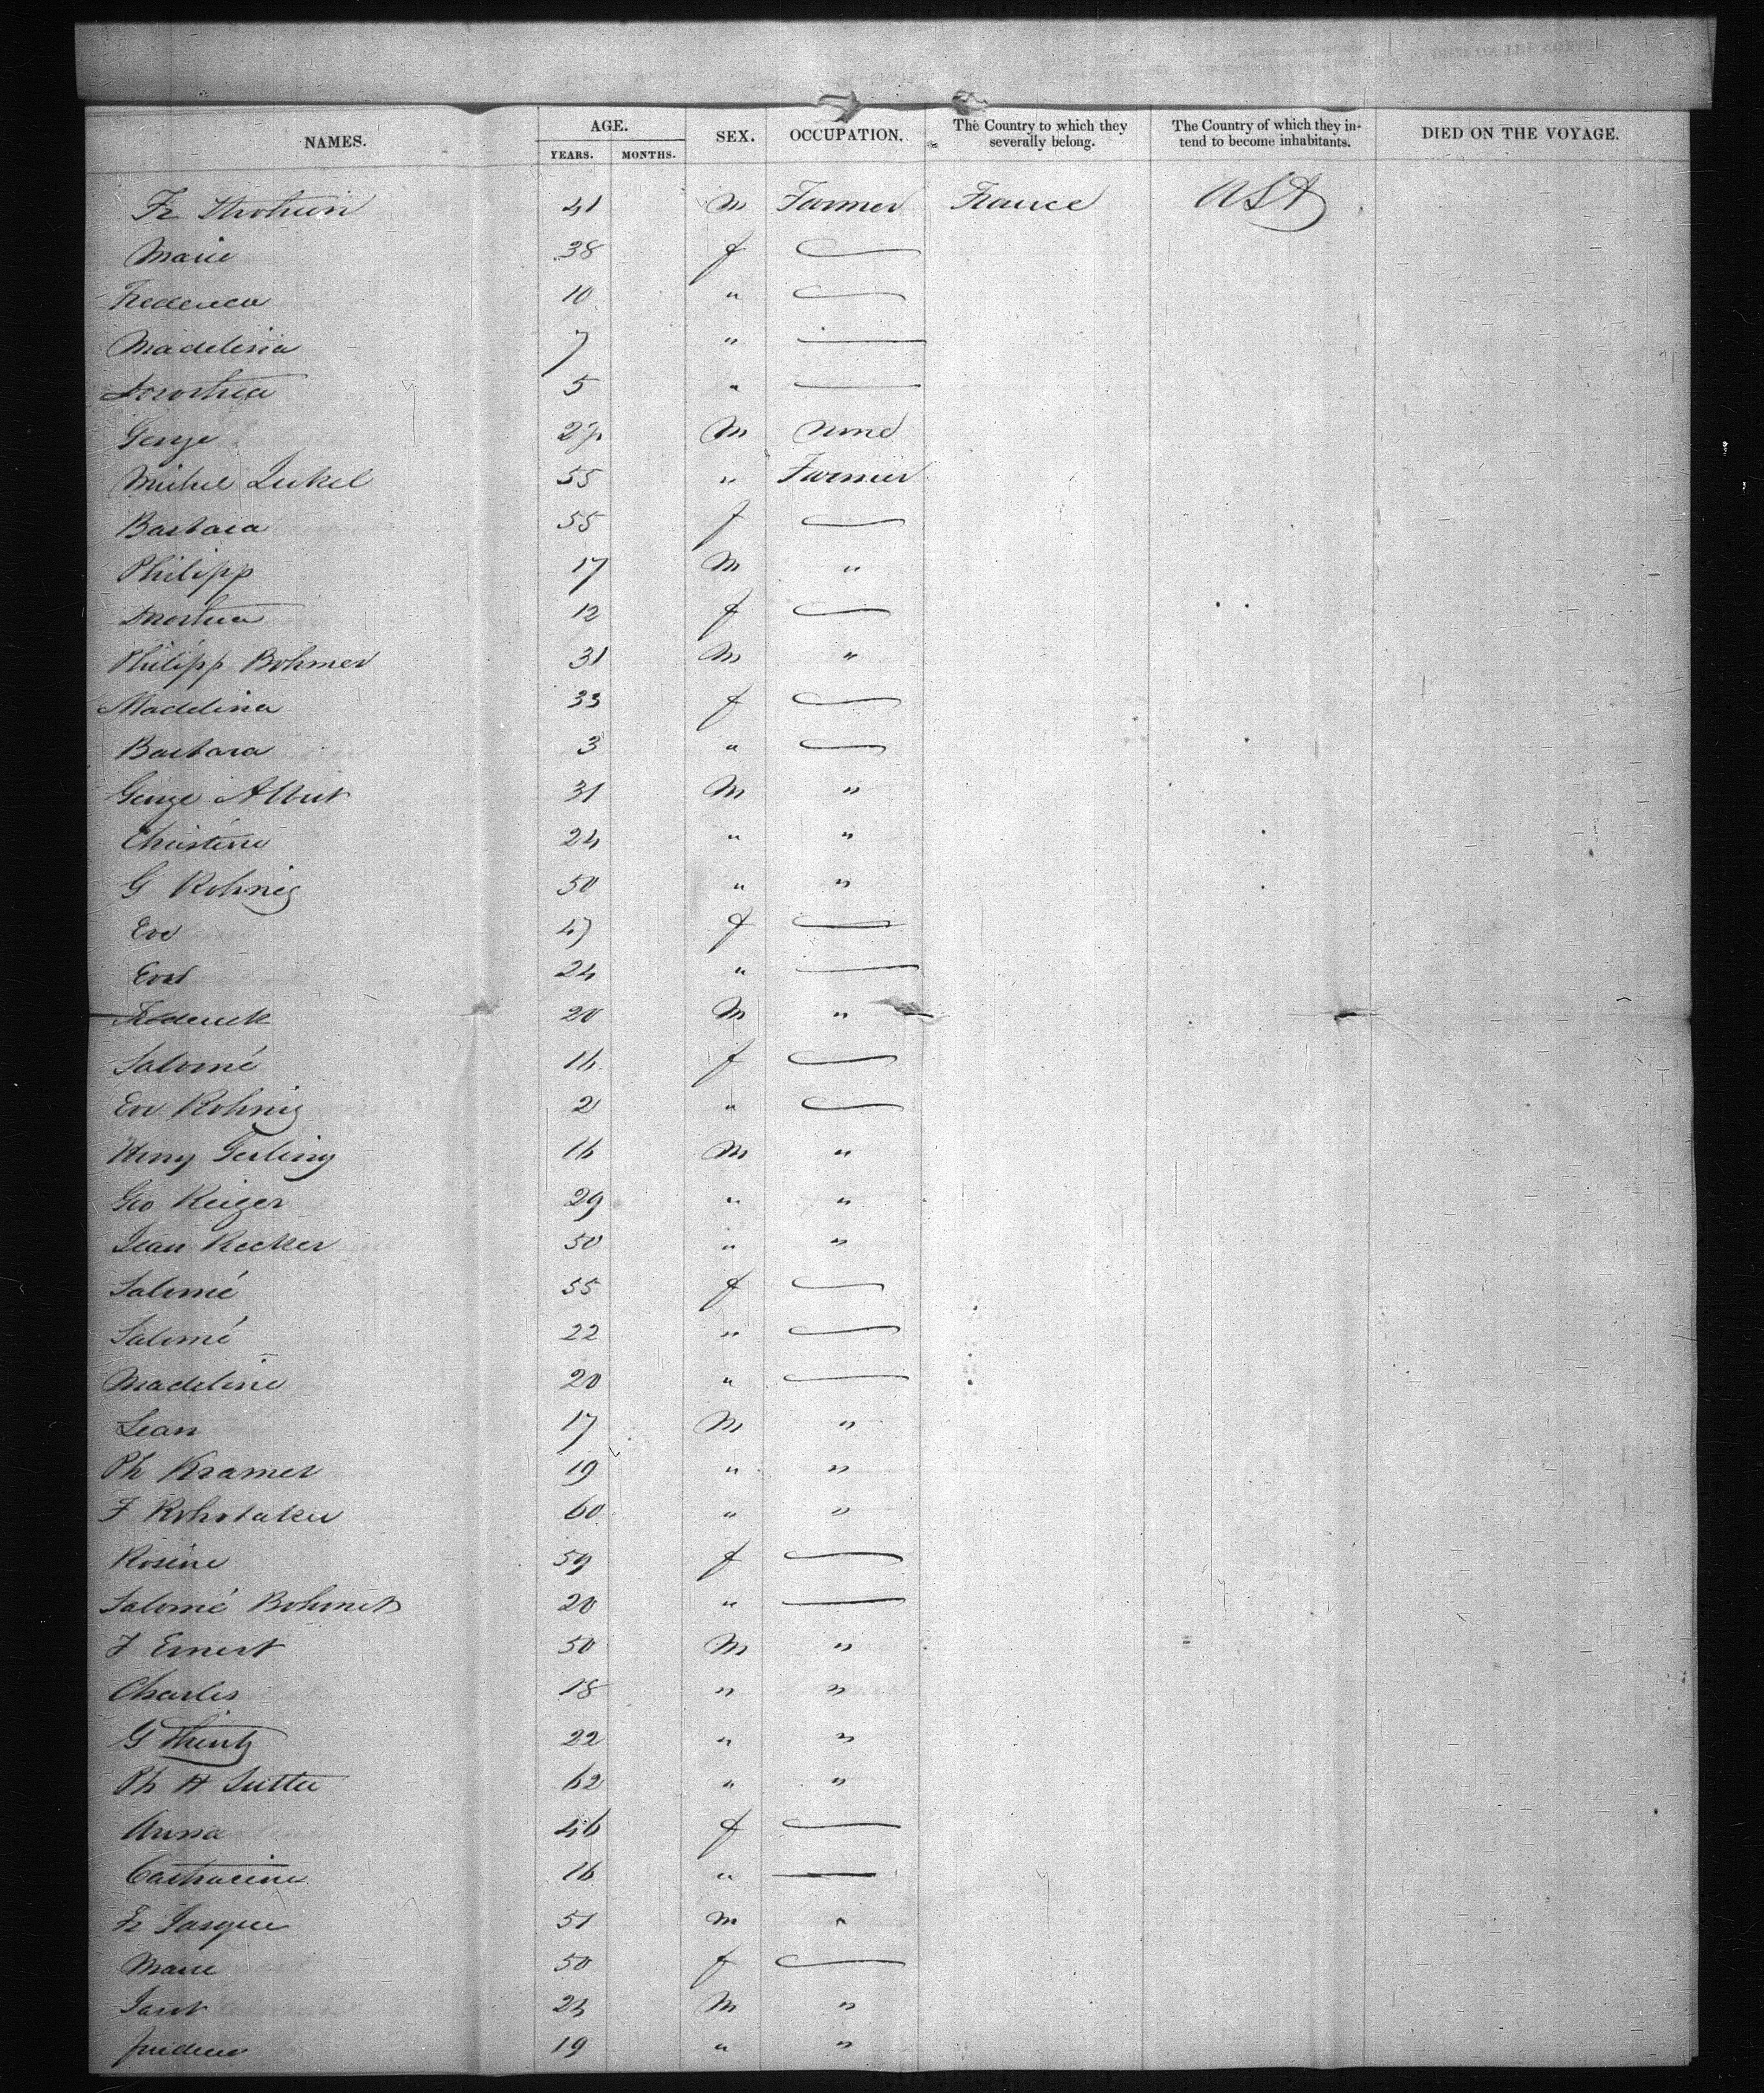 NAMES. AGE. YEARS. MONTHS. SEX. OCCUPATION. The Country to which they severally belong. The Country of which they intend to become inhabitants. DIED ON THE VOYAGE.
Fr 41 M Farmer France USA
Marie 38 f
Frederica 10 "
Madelina 7 "
Dorothea 5 "
George 2 M none
Michel 55 " Farmer
Barbara 55 f
Philipp 17 M "
Dorothea 12 f
Philipp Bohmer 31 M "
Madelina 33 f
Barbara 3 "
George Albert 31 M "
Christine 24 " "
G Rohnig 50 " "
Eve 47 f
Eve 24 "
Frederick 20 M "
Salomé 16 f
Eve Rohnig 2 "
Henry Gerling 16 M "
Geo Reiger 29 " "
Jean Recker 50 " "
Salomé 55 f
Salomé 22 "
Madeline 20 "
Jean 17 M "
Ph Kramer 19 " "
F 60 " "
Rosine 59 f
Salomé Bohmer 20 "
F Ernest 50 M "
Charles 18 " "
G 22 " "
Ph H Sutter 62 " "
Anna 46 f
Catharine 16 "
Fr Jaque 51 M "
Marie 50 f
24 M "
19 " "